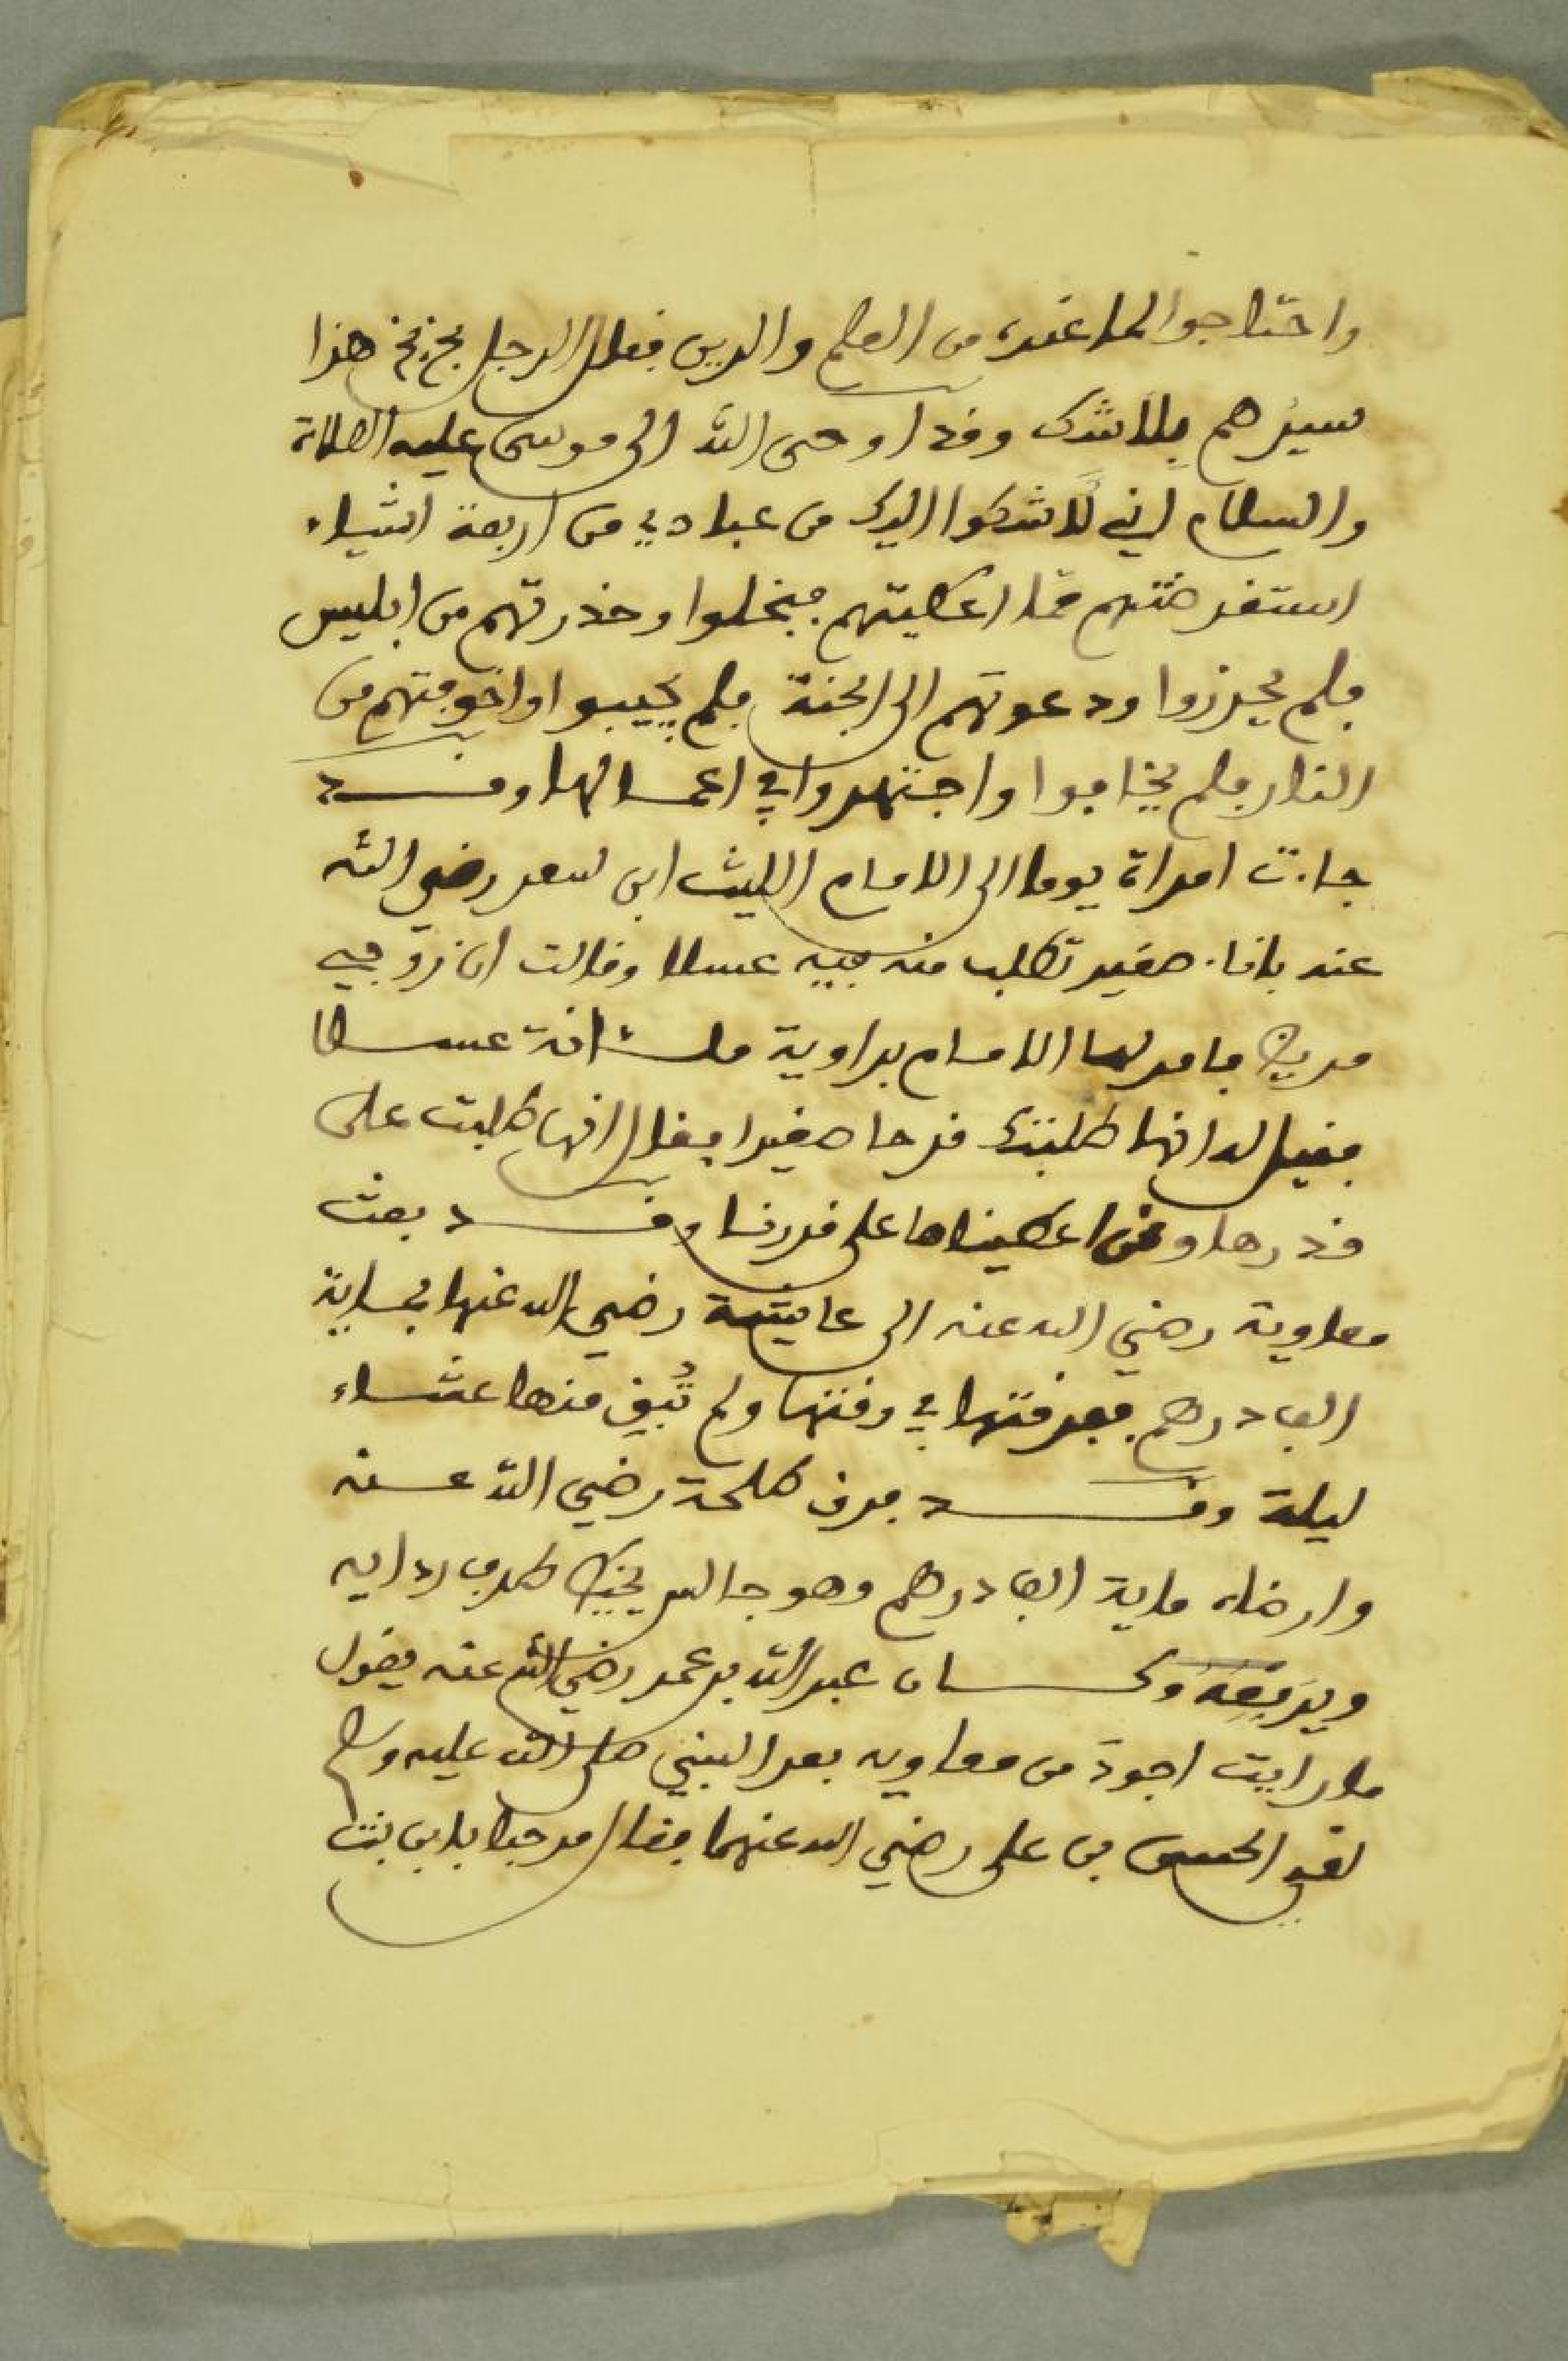 واحتاجوا لما عنده من العلم والدين فقال الرجل بخ بخ هذا
سيدهم بلا شك وقد اوحى الله الى موسى عليه الصلاة
والسلام اني لاشكوا اليك من عبادي من اربعة اشياء
استقرضتهم مما اعطيتهم فبخلوا وحذرتهم من ابليس
فلم يحذروا ودعوتهم الى الجنة فلم يجيبوا واخوفتهم من
النار فلم يخافوا واجتهدوا في اعمالها وقد
جاءت امراة يوما الى الامام الليث ابن سعد رضي الله
عنه باناء صغير تطلب منه فيه عسلا وقالت ان زوجي
مريض فامر لها الامام براوية ملئانة عسلا
فقيل له انها طلبت قدحا صغيرا فقال انها طلبت على
قدرها ونحن اعطيناها على قدرنا وقد بعث
معاوية رضي الله عنه الى عايشة رضي الله عنها بماية
الف درهم ففرقتها في وقتها ولم تبق منها عشاء
ليلة وقد فرق طلحة رضي الله عنه
وارضاه ماية الف درهم وهو جالس يخيط طرف ردايه
ويرفعه وكان عبد الله بن عمر رضي الله عنه يقول
ما رايت اجود من معاويه بعد النبي صلى الله عليه وسلم
لقي الحسن بن على رضي الله عنهما فقال مرحبا بابن بنت